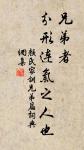 兄弟者
分形連氣之人也
顏氏家訓兄弟篇詞典
網集